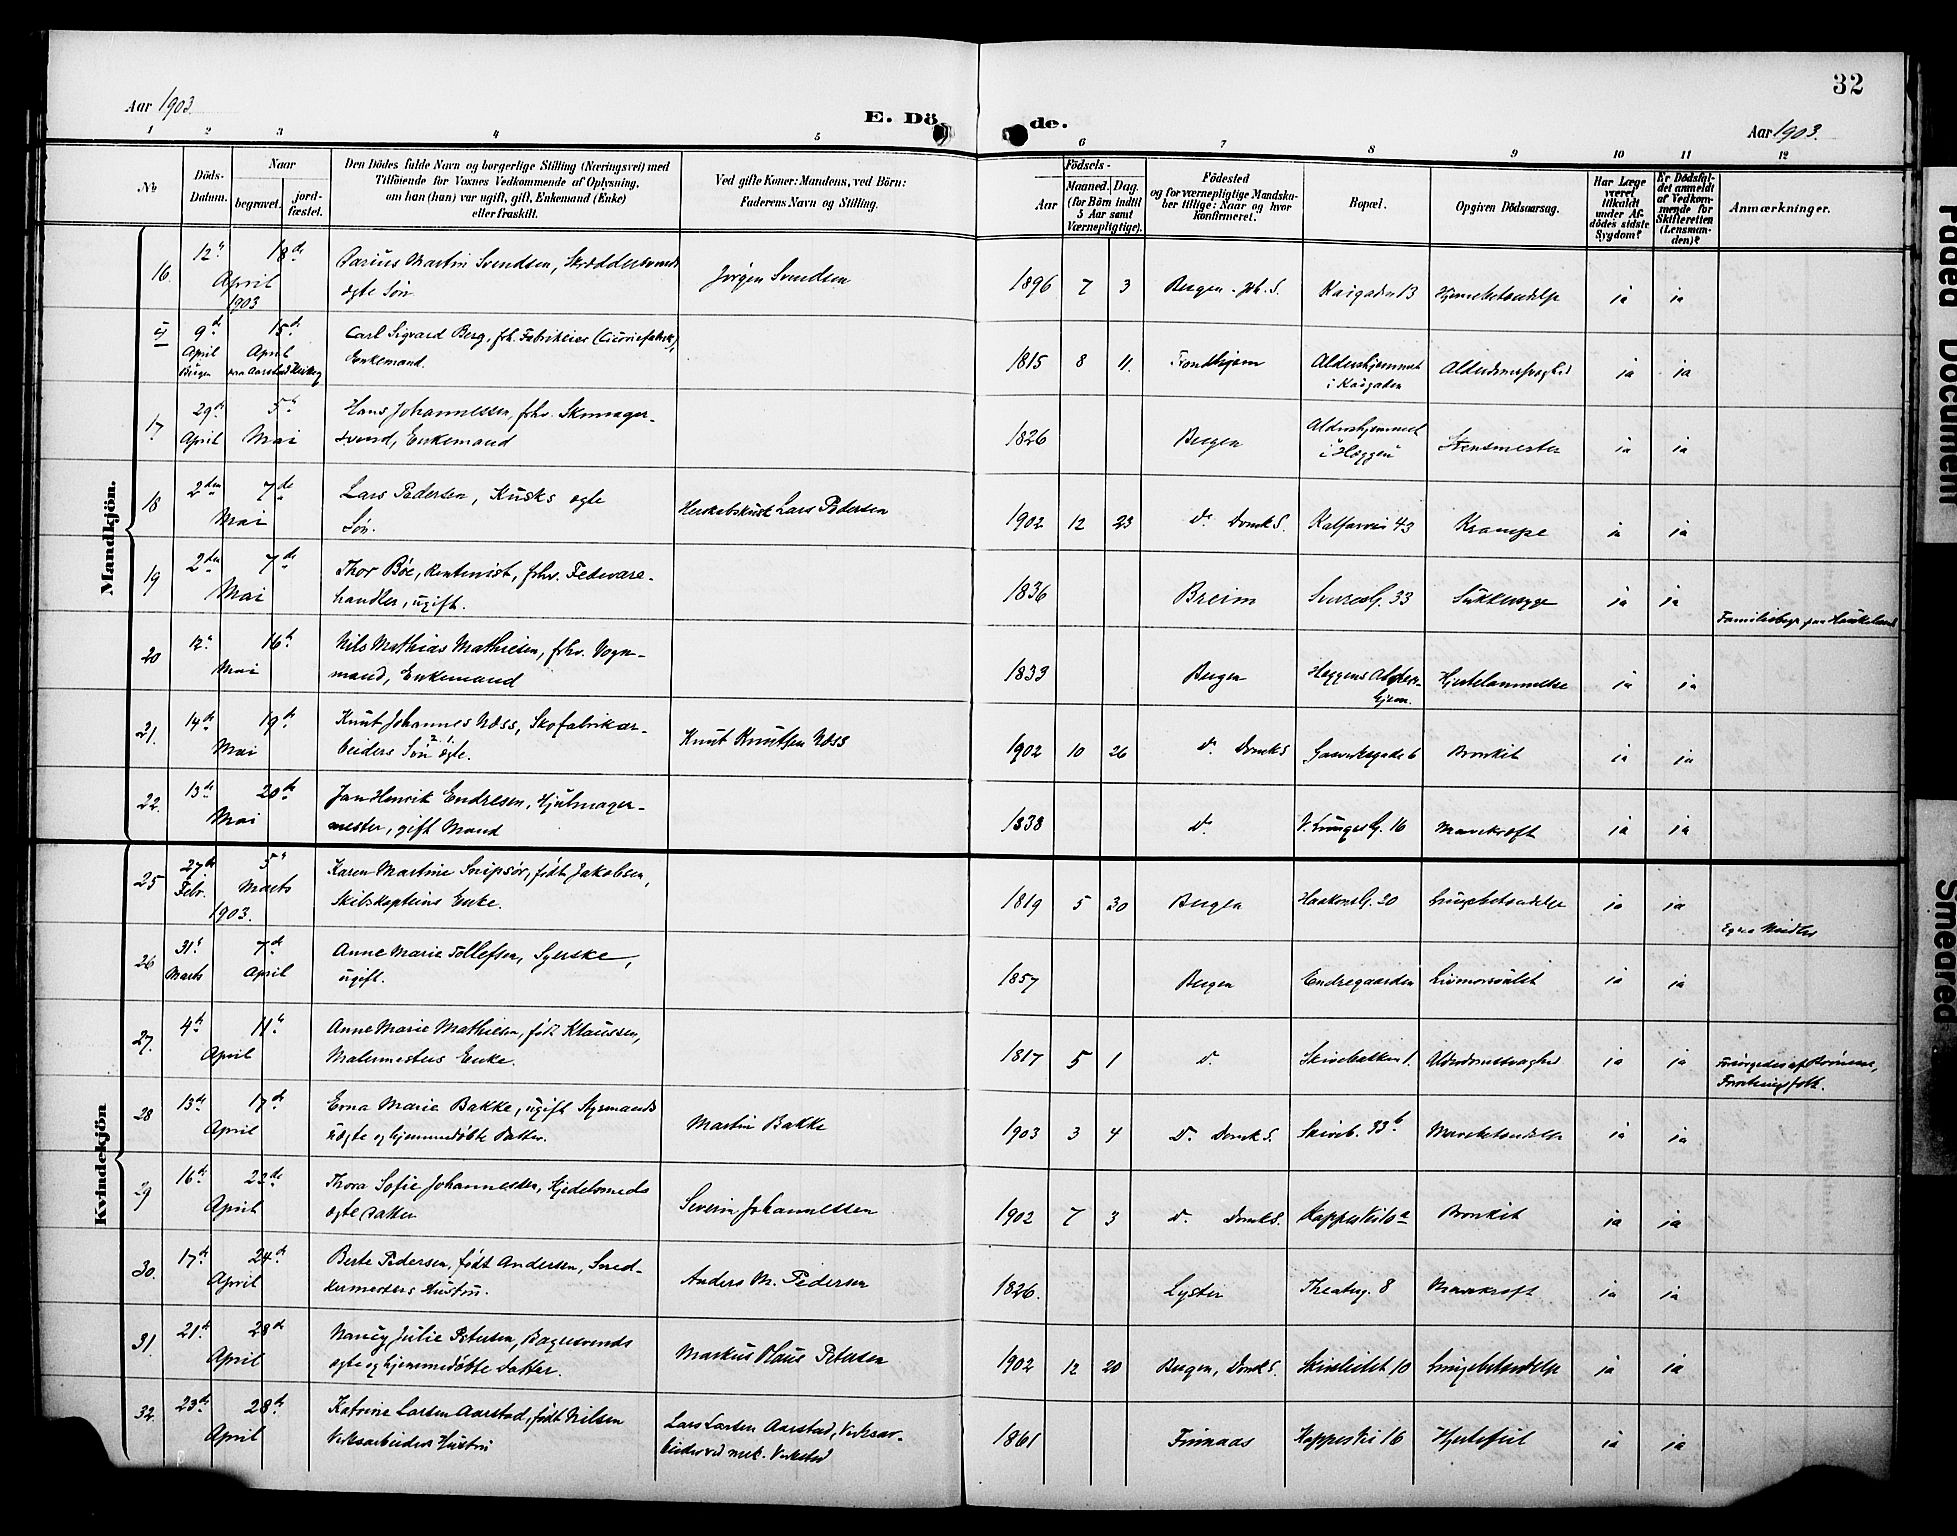 32
Aar 1903.
E. Dö de.
Aar 1903.
1 2 3 4 5 6 7 8 9 10 11 12
No
Döds-
Datum.
Naar
begravet.
jord-
fæstet.
Den Dödes fulde Navn og borgerlige Stilling (Næringsvei) med
Tilföiende for Voxnes Vedkommende af Oplysning,
om han (hun) var ugift, gift, Enkemand (Enke)
eller fraskilt.
Ved gifte Koner: Mandens, ved Börn:
Faderens Navn og Stilling.
Födsels-
Aar
Maaned. Dag.
(for Börn indtil
5 Aar samt
Værnepligtige).
Födested
og for værnepligtige Mandskaber
tillige: Naar og hvor
konfirmeret.
Bopæl.
Opgiven Dödsaarsag.
Har Læge
været
tilkaldt
under Af-
dödes sidste
Sygdom?
Er Dödsfal-
det anmeldt
af Vedkom-
mende for
Skifteretten
(Lensman-
den)?
Anmærkninger.
Mandkjön.
16. 12te April 1903 18de Martin Svendsen, Skræddersvends
ægte Søn
Jørgen Svendsen
1896 7 3 Bergen Kaigaden 13 Hjernebetændelse ja ja
9de April Bergen 15de April Carl Sigvard Berg, fhv. Fabrikeier (Cicoriefabrik),
Enkemand.
1815 8 11. Trondhjem Aldershjemmet
i Kaigaden Alderdomssvaghed ja ja
17 29de April 5te Mai Hans Johannessen, fhv. Skomager-
svend, Enkemand
1826 Bergen Aldershjemmet
i Hæggen ja ja
18 2den 7de Mai Lars Pedersen, Kusks ægte
Søn.
Herskabskusk Lars Pedersen
1902 12 23 do Domk S. Kalfarvei 43 Krampe ja ja
19 2den 7de Mai Thor Bøe, Rentenist, fhv. Fedevare-
handler, ugift.
1836 Breim Sverresg. 33 Sukkersyge ja ja
20 12te 16de Mai Nils Mathias Mathiesen, fhv. Vogn-
mand, Enkemand
1833 Bergen Hæggens Alders-
hjem. Hjertelammelse ja ja
21. 14de 19de Mai Knut Johannes Næss, Skofabrikar-
beiders Søn ægte.
Knut Knutsen Næss
1902 10 26 do Domk S Gasverksgade 6 Bronkit ja ja
22. 13de 20de Mai Jan Henrik Endresen, Hjulmager-
mester, gift Mand
1838 do V. Lungeg. 16 Mavekræft ja ja
Kvindekjön
25 27de Febr. 5te Marts 1903. Karen Martine Snipsør, født Jakobsen,
Skibskapteins Enke.
1819 5 30 Bergen Haakonsg. 20 Lungebetændelse ja ja
26 31te Marts 7de April Anne Marie Tollefsen, Syerske,
ugift.
1857 Bergen Endregaarden ja ja
27. 4de 11te April Anne Marie Mathiesen, født Klaussen,
Malermesters Enke.
1817 5 1 do Skivebakken 1. Alderdomssvaghed ja ja
Forsørgedes af Børnene,
28 13de 17de April Erna Marie Bakke, ugift Styrmands
uægte og hjemmedøbte Datter.
Martin Bakke
1903 3 4 do Domk S. Skiveb. 33b Mavebetændelse ja ja
29 16de 22de April Thora Sofie Johannessen, Kjedelsmeds
ægte Datter
Severin Johannessen
1902 7 3 do Domk S. Bronkit ja ja
30. 17de 24de April Berte Pedersen, født Andersen, Sned-
kermesters Hustru.
Anders M. Pedersen
1826. Lyster Theaterg. 8 Mavekræft ja ja
31. 21de 28de April Nancy Julie Petersen, Bagersvends
ægte og hjemmedøbte Datter.
Markus Olaus Petersen
1902 12 20 Bergen, Domk S. 10 Lungebetændelse ja ja
32. 23de 28de April Katrine Larsen Aarstad, født Nilsen
Verksarbeiders Hustru
Lars Larsen Aarstad, Verksar-
beider ved mek. Verksted
1861 Finnaas Hjertefeil ja ja
Faded Document
Smeared